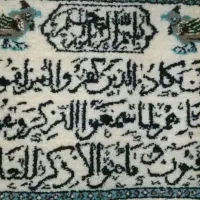 بسم الله الرحمن الرحيم
يكاد الذين كفروا ليزلقو
لما سمعوا الذكر ويقو
نون وما هو الا ذكر للعا